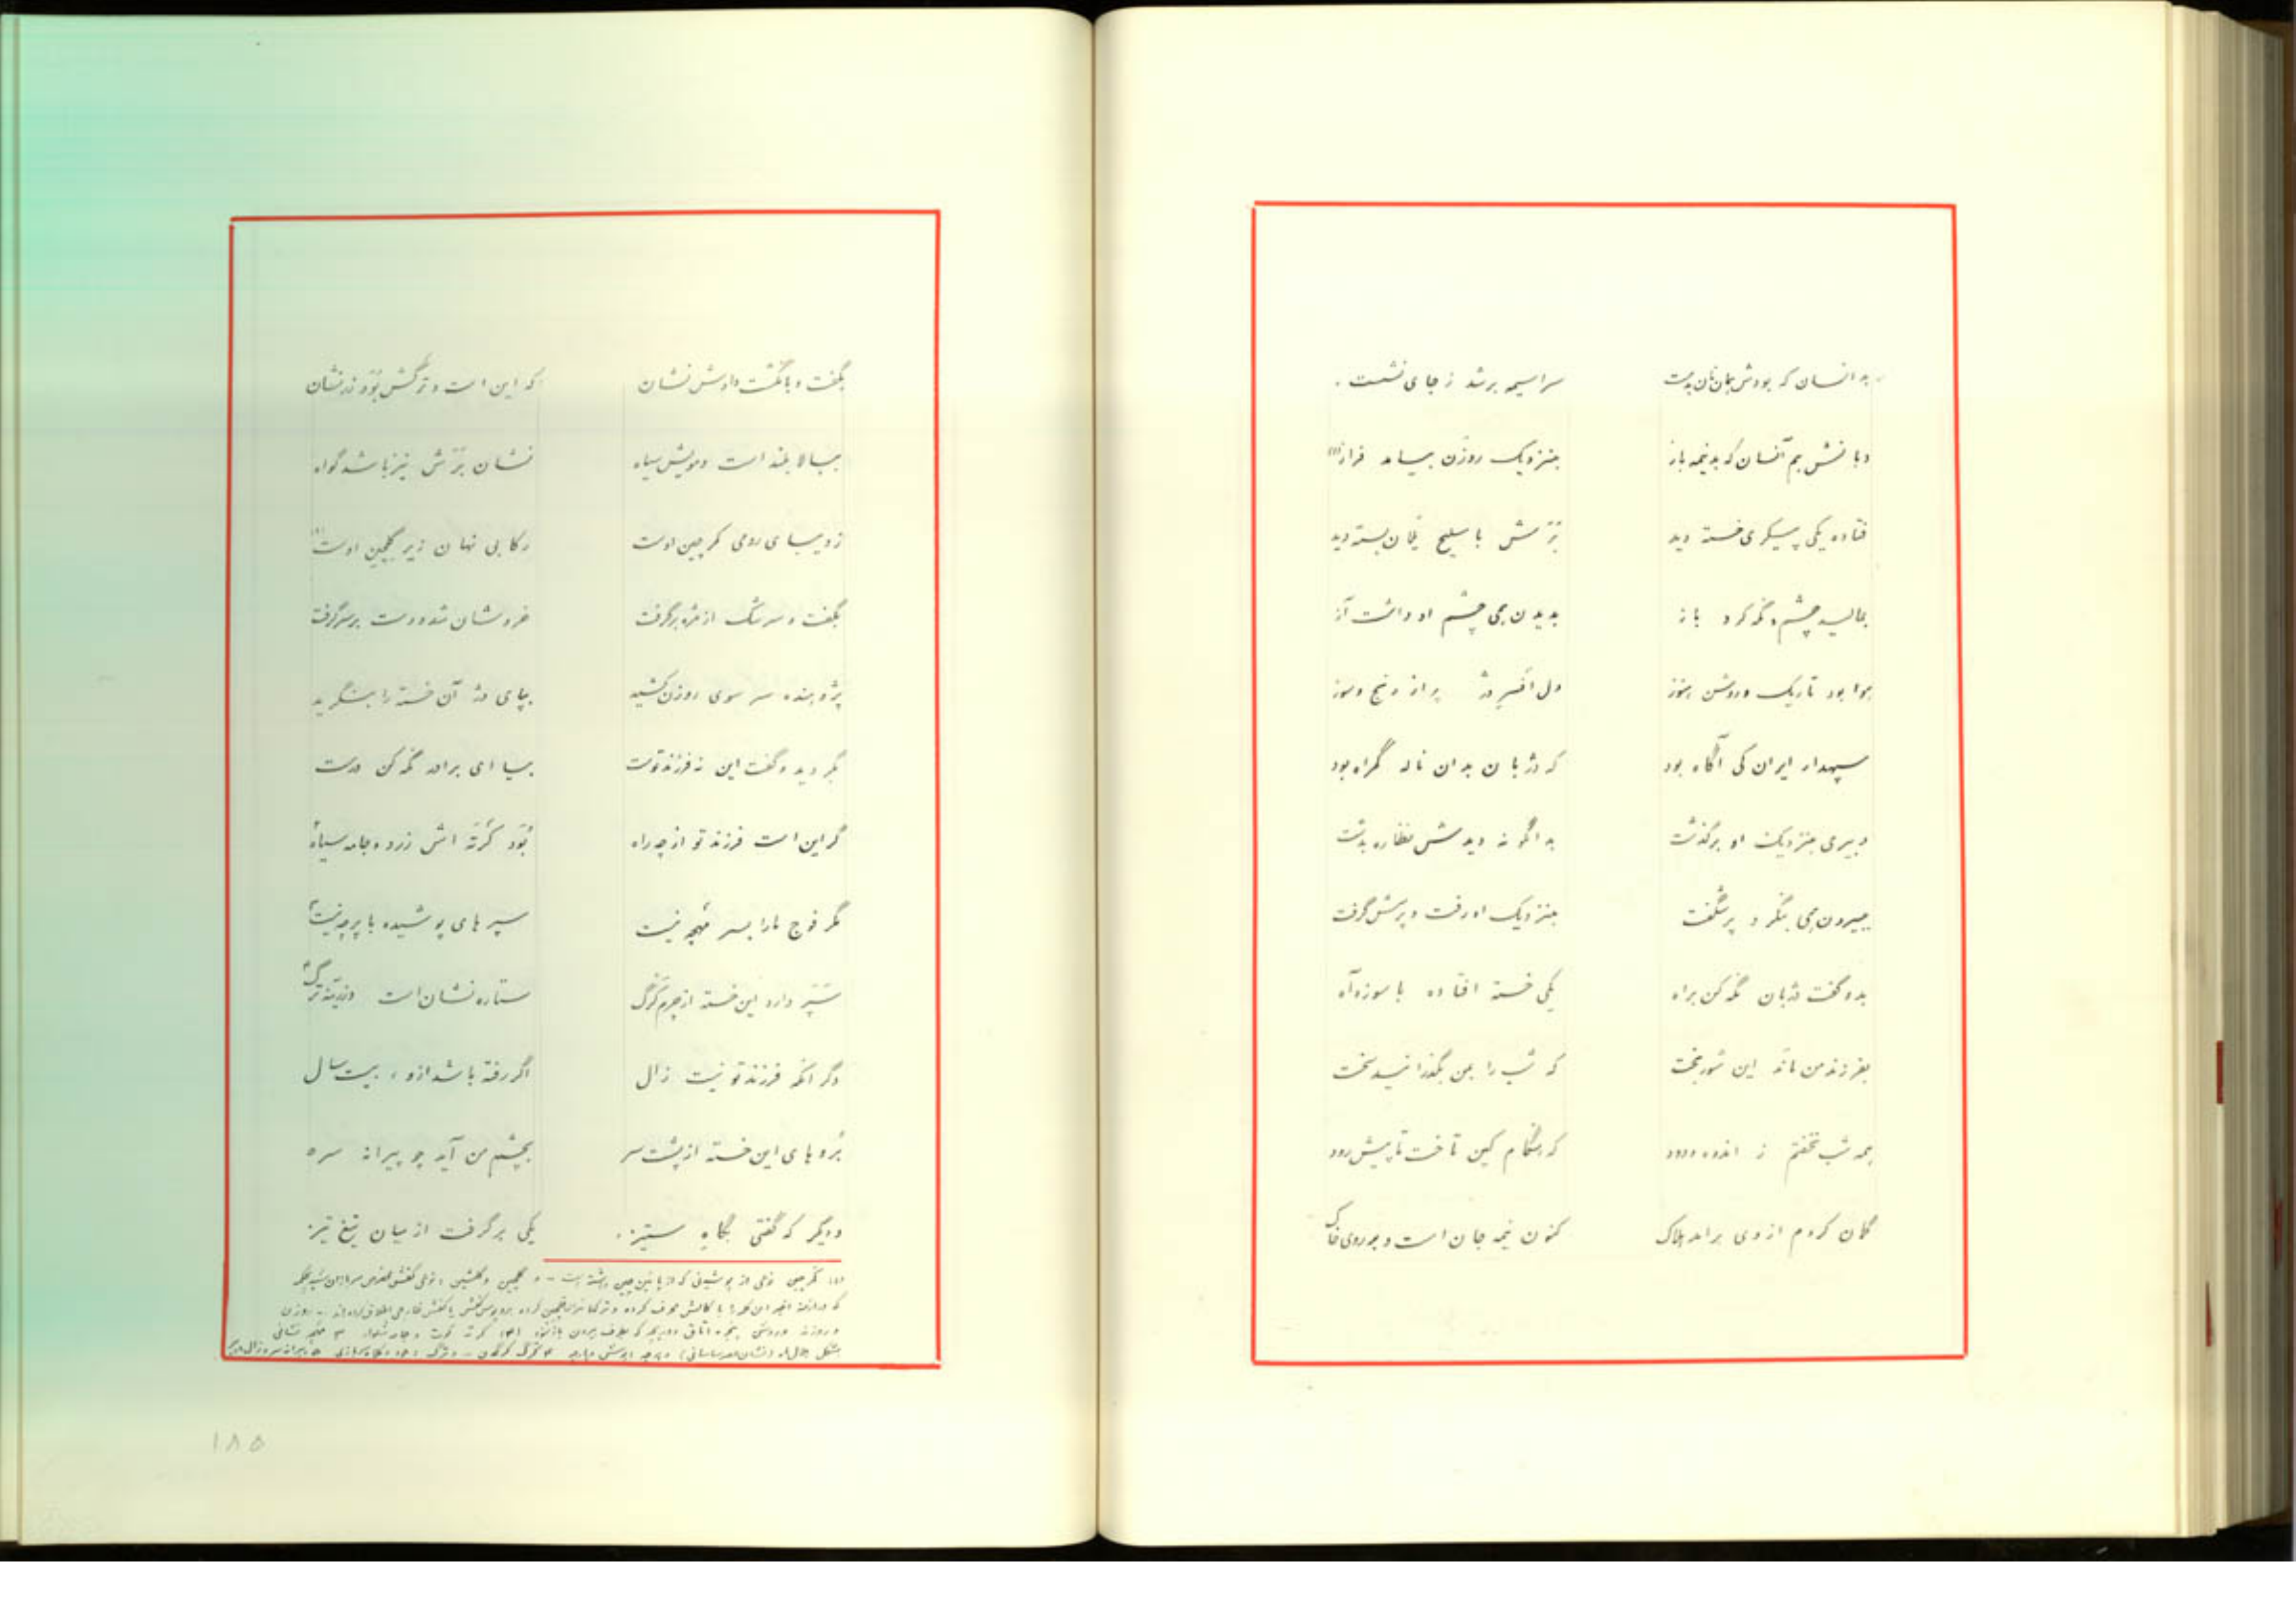 بدانسان که بودش بمان نان بدست سراسیمه برشد ز جای نشست.
دهانش هم آنسان که بد نیمه باز بنزدیک روزن بیامد فراز (۱)
فتاده یکی پیکری خسته دید برش با سلیح یلان بسته دید
بمالید چشم و نگه کرد باز بدیدن همی چشم او داشت آز
هوا بود تاریک و روشن هنوز دل افسر دژ پر از رنج و سوز
سپهدار ایران کی آگاه بود که دژبان بدان ناله گمراه بود
دبیری بنزدیک او برگذشت بدانگونه دیدش نظاره بدشت
ببیرون همی بنگرد پر شگفت بنزدیک او رفت و پرسش گرفت
بدو گفت دژبان نگه کن براه یکی خسته افتاده با سوز و آه
بفرزند من ماند این شوربخت که شب را بمن بگذرانید سخت
همه شب نخفتم ز اندوه و درد که هنگام کین تاخت تا پیش رود
گمان کردم از وی برآمد هلاک کنون نیمه جان است و بر روی خاک
بگفت و بانگشت دادش نشان که این است و ترکش بود زرنشان
ببالا بلند است و مویش سیاه نشان برش نیز باشد گواه
ز دیبای رومی کمرچین اوست رکابی نهان زیر گلچین اوست (۱)
بگفت و سرشک از مژه برگرفت خروشان شد و دست بر سر گرفت
پژوهنده سر سوی روزن کشید بپای دژ آن خسته را بنگرید
بگردید و گفت این نه فرزند توست بیا ای برادر نگه کن درست
گر این است فرزند تو از چه راه بود کرته اش زرد و جامه سیاه ۲
مگر فوج ما را بسر منجه نیست سپرهای پوشیده با پرچه نیست ۳
سپر دارد این خسته از چرم کرگ ستاره نشان است و زرینه ترگ ۴
دگر آنکه فرزند تو نیست زال اگر رفته باشد ازو، بیست سال
بروهای این خسته از پشت سر بچشم من آید چو پیرانه سره
و دیگر که گفتی بگاه ستیز. یکی برگرفت از میان تیغ تیز.
(۱) کمرچین نوعی از پوشیدنی که از پائین چین داشته است - و گلچین
و روزنه و روشن پنجره اتاق و دریچه که بطرف بیرون باز شود (۲) کرته کوت و جامه
شکل هلال ماه (نشان عهد ساسانی) ۴ کرگ کرگدن - و ترگ
۱۸۵